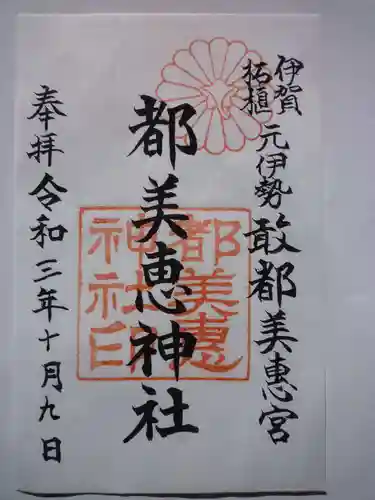 伊賀
柘植
元伊勢 敢都美恵宮
都美恵神社
都美恵
神社印
奉拝 令和三年十月九日